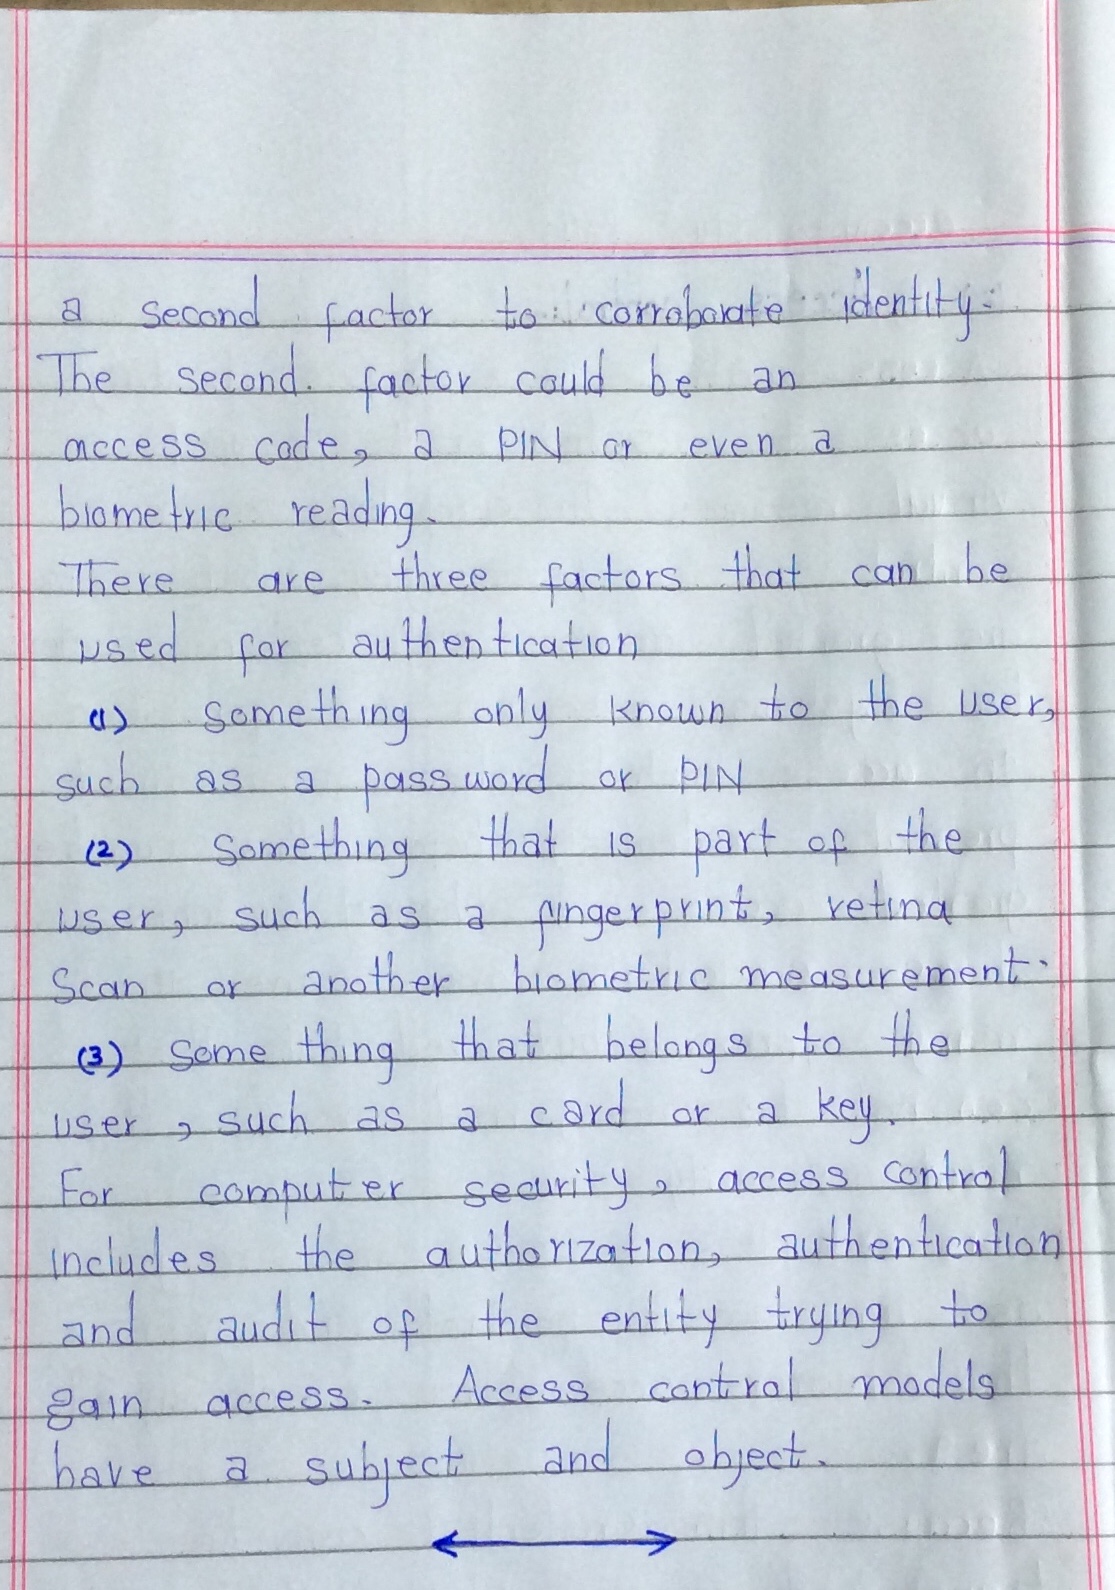 a second factor to corroborate identity.
The second factor could be an
access code, a PIN or even a
biometric reading.
There are three factors that can be
used for authentication
(1) Something only known to the user,
such as a password or PIN
(2) Something that is part of the
user, such as a fingerprint, retina
Scan or another biometric measurement.
(3) Some thing that belongs to the
user, such as a card or a key.
For computer security, access control
includes the authorization, authentication
and audit of the entity trying to
gain access. Access control models
have a subject and object.